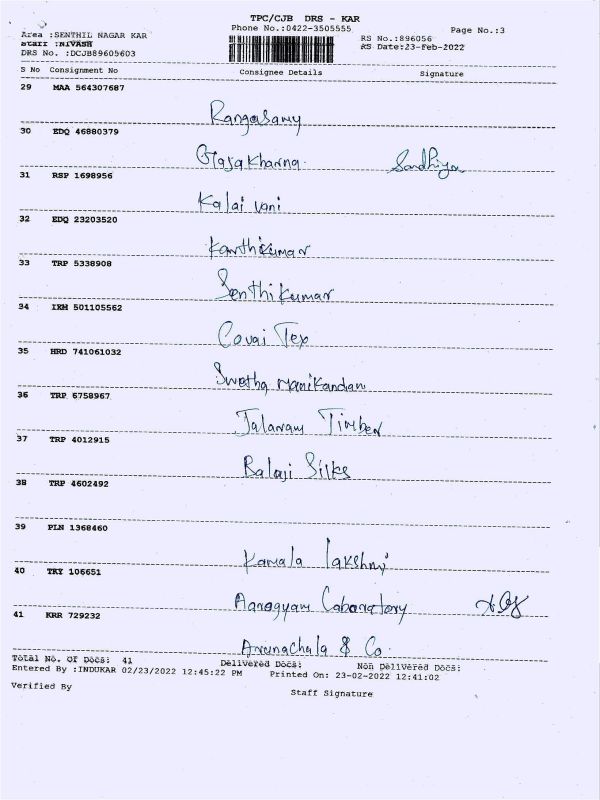 TPC/CJB DRS - KAR
Phone No.:0422-3505555 Page No.:3
Area :SENTHIL NAGAR KAR
Staff :NIVASH
RS No.:896056
DRS No. :DCJB89605603
RS Date:23-Feb-2022
S No Consignment No Consignee Details Signature
29 MAA 564307687
Rangasamy
30 EDQ 46880379
Gajakharna Sandhiya
31 RSP 1698956
Kalai vani
32 EDQ 23203520
Karthikumar
33 TRP 5338908
Senthikumar
34 IXM 501105562
Covai Tex
35 HRD 741061032
Swetha Manikandan
36 TRP 6758967
Jalaram Timber
37 TRP 4012915
Balaji Silks
38 TRP 4602492
39 PLN 1368460
Kamala lakshmi
40 TKY 106651
Aarogyam Laboratory
41 KRR 729232
Arunachala & Co
Total No. Of Docs: 41 Delivered Docs: Non Delivered Docs:
Entered By :INDUKAR 02/23/2022 12:45:22 PM Printed On: 23-02-2022 12:41:02
Verified By Staff Signature